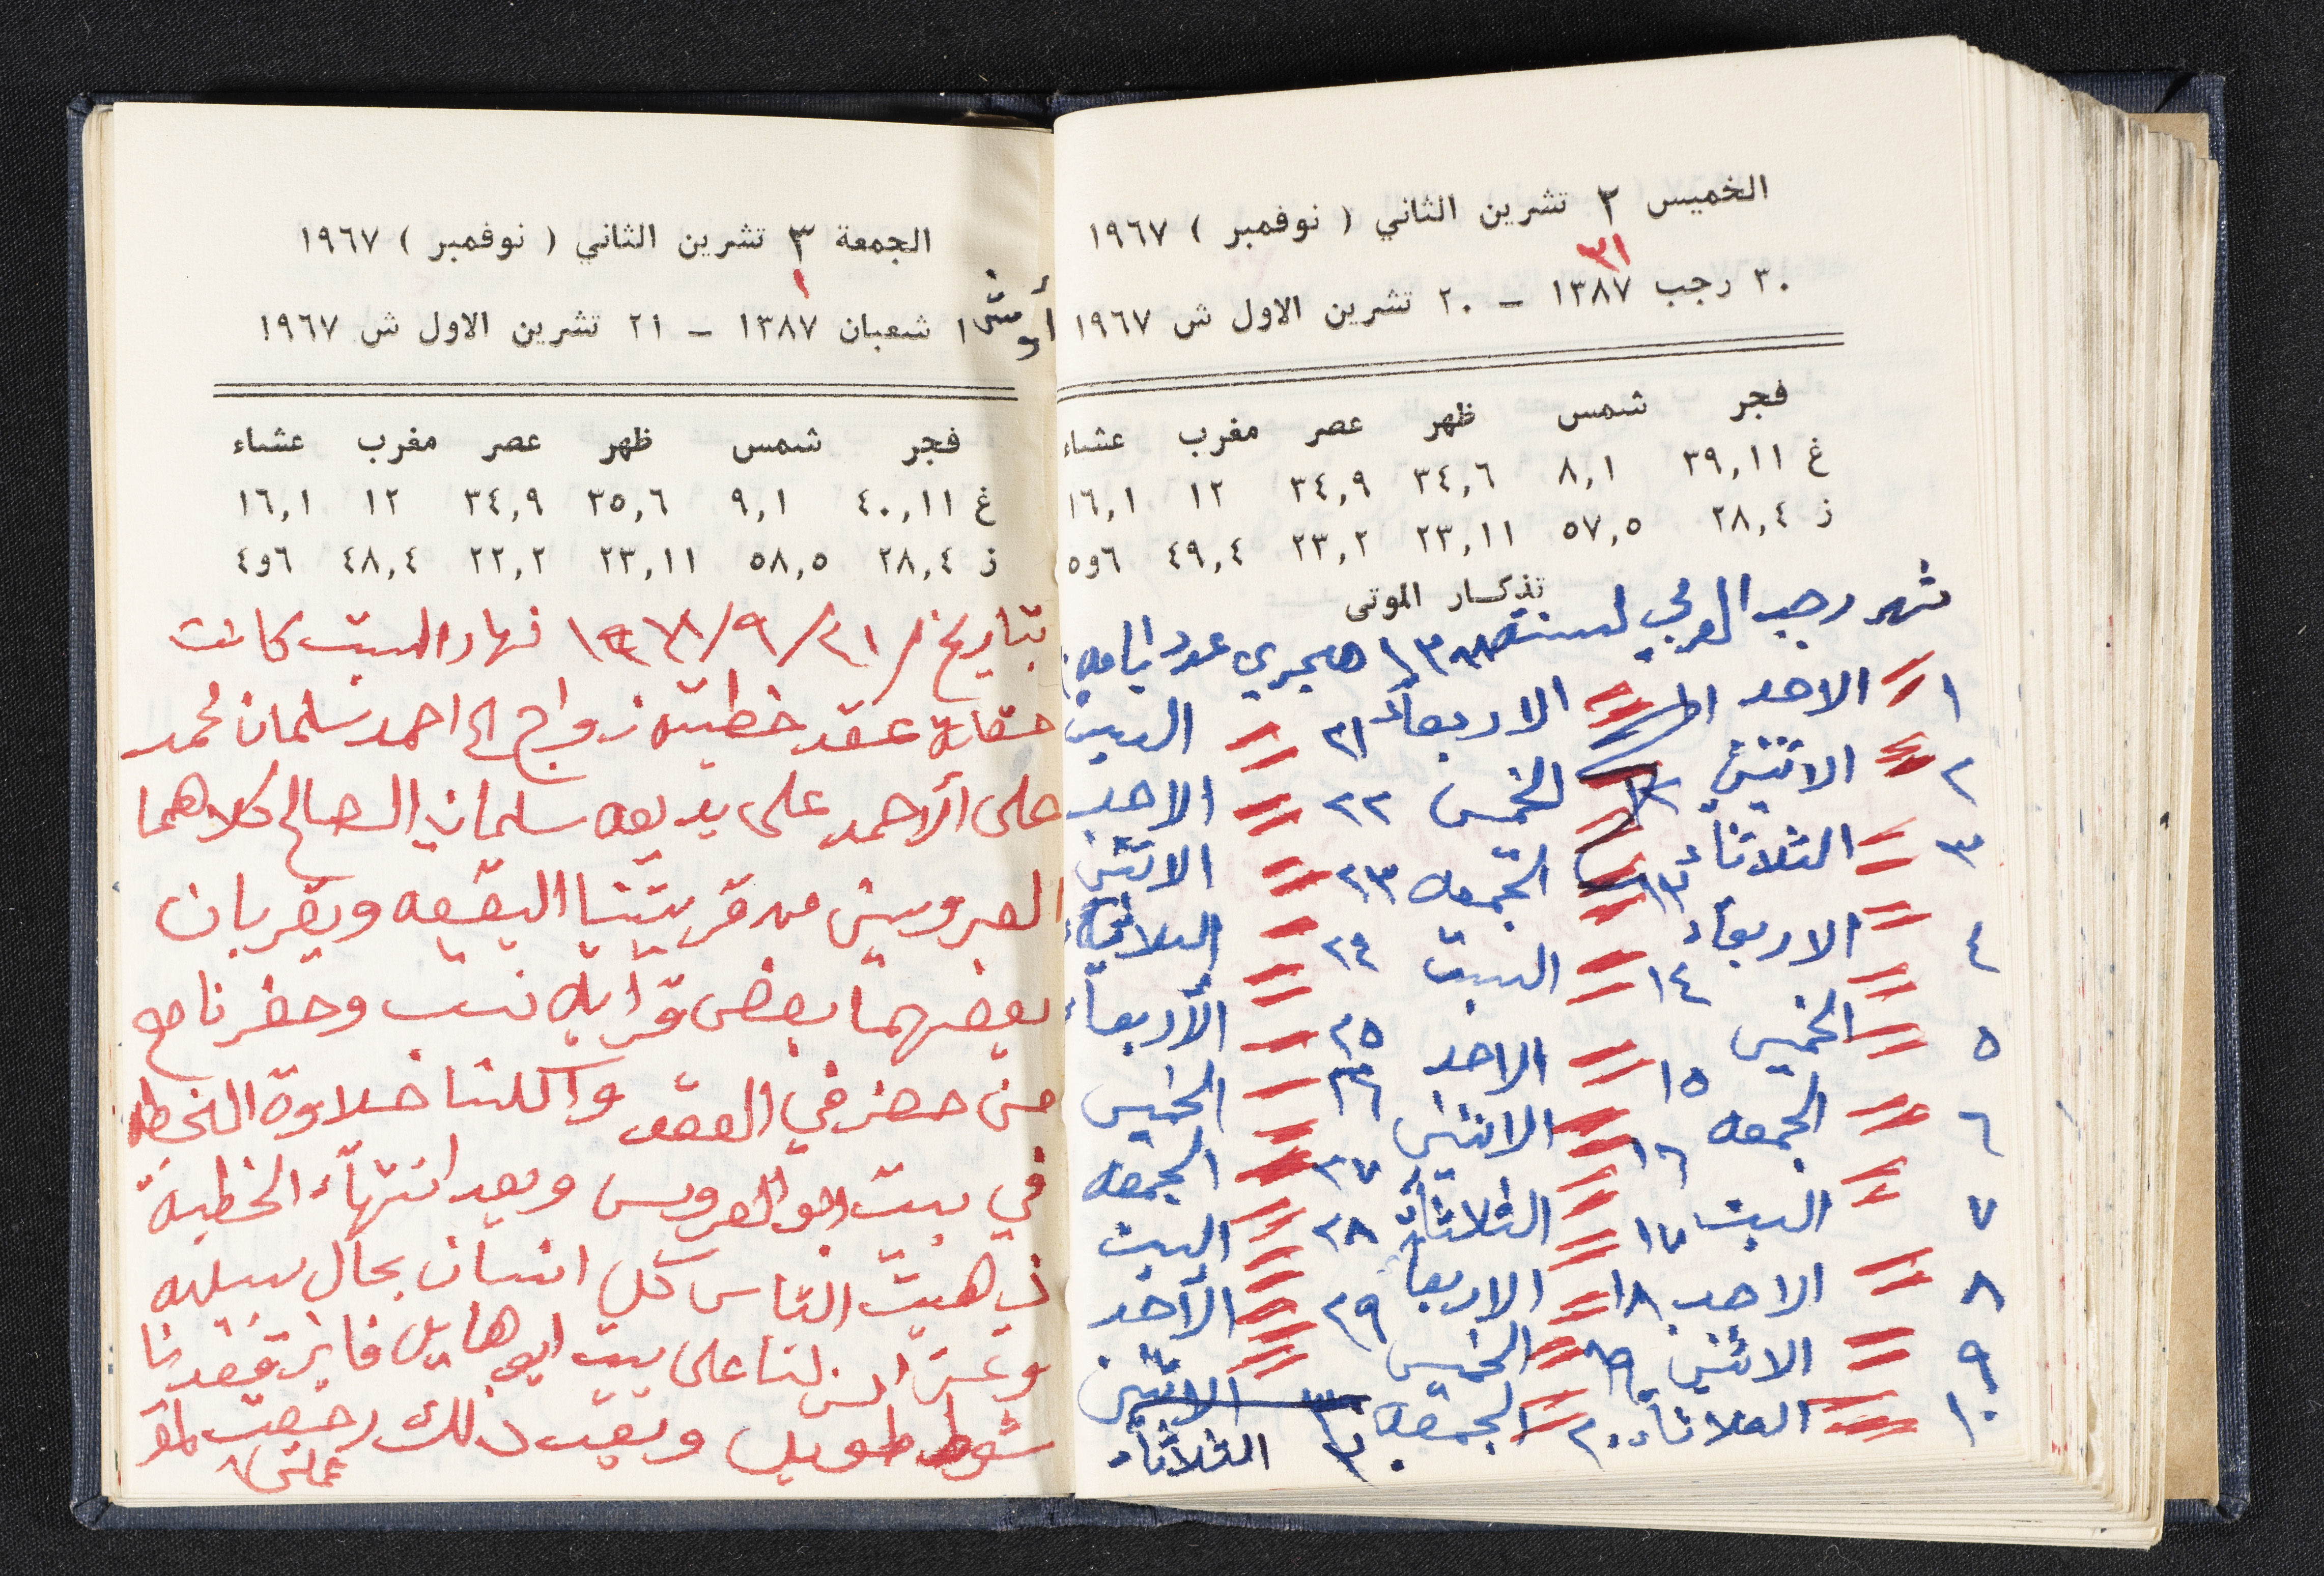 الخميس ٢ تشرين الثاني ( نوفمبر ) ١٩٦٧
٣١
٣٠ رجب ١٣٨٧ – ٢٠ تشرين الاول ش ١٩٦٧
فجر شمس ظهر عصر مغرب عشاء
غ ٣٩,١١ ٨,١ ٣٤,٦ ٣٤,٩ ١٢ ١٦,١
ز ٢٨,٤ ٥٧,٥ ٢٣,١١ ٢٣,٢ ٤٩,٤ ٦و٥
تذكار الموتى
شهر رجب العربي لسنة هجري عدد ايامه
١ الاحد الاربعاء ٢١ السبت
٢ الاثنين ١٢ الخمس ٢٢ الاحد
٣ الثلاثاء ١٣ الجمعه ٢٣ الاثنين
٤ الاربعاء ١٤ السبت ٢٤ الثلاثاء
٥ الخميس ١٥ الاحد ٢٥ الأربعاء
٦ الجمعه ١٦ الاثنين ٢٦ الخميس
٧ السبت ١٧ الثلاثاء ٢٧ الجمعه
٨ الاحد ١٨ الاربعا ٢٨ السبت
٩ الاثنين ١٩ الخميس ٢٩ الأحد
١٠ الثلاثاء ٢٠ الجمعه ٣٠ الاثنين
٣٠ الثلاثاء
الجمعة ٣ تشرين الثاني ( نوفمبر ) ١٩٦٧
١
١ شعبان ١٣٨٧ – ٢١ تشرين الاول ش ١٩٦٧
فجر شمس ظهر عصر مغرب عشاء
غ ٤٠,١١ ٩,١ ٣٥,٦ ٣٤,٩ ١٢ ١٦,١
ز ٢٨,٤ ٥٨,٥ ٢٣,١١ ٢٢,٢ ٤٨,٤ ٦و٤
بتاريخ ٢١/٩/ نهار السبت كانت
عقد خطبة زواج احمد سلمان محمد
على الأحمد على بديعه سلمان الصالح كلاهما
العروسين من قريتنا البقيعه ويقربان
بعضهما بعض قرابه نسب وحضرنا مع
من حضر في العقد واكلنا حلاوة الخطبه
في بيت ابو العروس وبعد انتهاء الخطبة
ذهبت الناس كل انسان بحال سبيله
لنا على بيت ابو هايل فايز قعدنا
شوط طويل وبعد ذلك رجعت